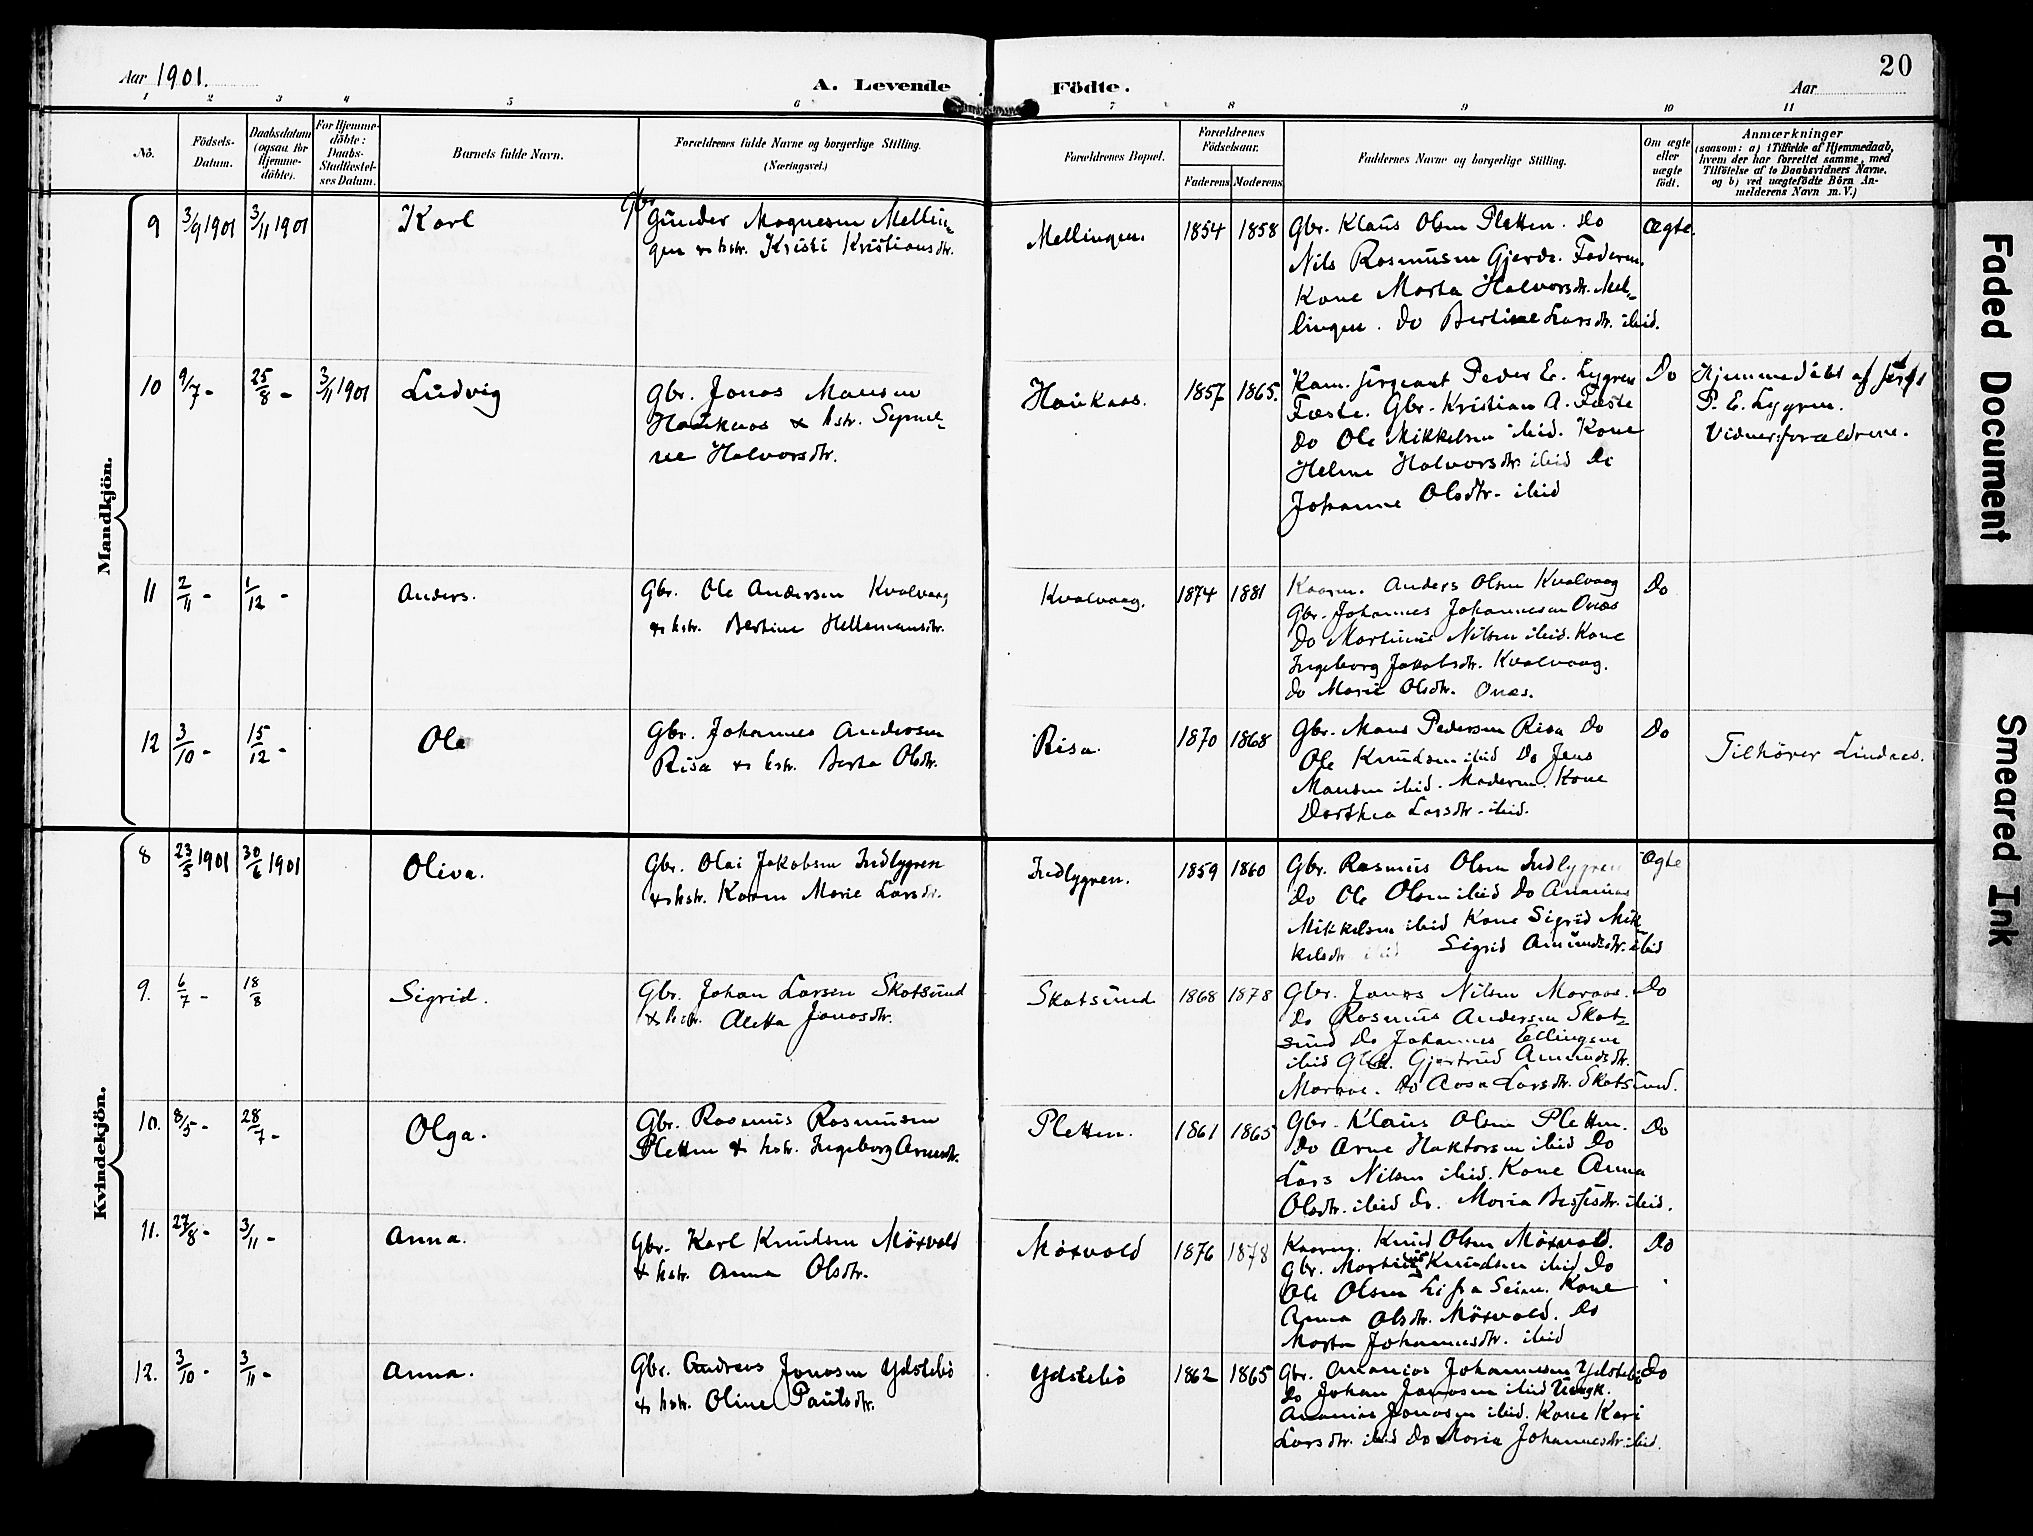 Aar 1901.
A. Levende Födte.
Aar
20
1 2 3 4 5 6 7 8 9 10 11
No.
Födsels-Datum.
Daabsdatum (ogsaa for Hjemme-döbte).
For Hjemme-döbte: Daabs-Stadfestel-ses Datum.
Barnets fulde Navn.
Forældrenes fulde Navne og borgerlige Stilling. (Næringsvei.)
Forældrenes Bopæl.
Forældrenes Födselsaar.
Faderens
Moderens
Faddernes Navne og borgerlige Stilling.
Om ægte eller uægte födt.
Anmærkninger
(saasom: a) i Tilfælde af Hjemmedaab,
hvem der har forrettet samme, med
Tilföielse af to Daabsvidners Navne,
og b) ved uægtefödte Börn An-
melderens Navn m. V.)
Mandkjön.
9 3/9 1901 3/11 1901 Karl
Gbr. Gunder Magnesen Mellin-
gen & hstr. Kristi Kristiansdtr.
Mellingen. 1854 1858
Gbr. Klaus Olsen Pletten. Do
Nils Rasmusen Gjerde. Faderen.
Kone Marta Halvorsdtr. Mel-
lingen. Do Bertine Larsdtr. ibid.
Ægte.
10 9/7 - 25/8 - 3/11 1901 Ludvig
Gbr. Jonas Mansen
Haukaas & hstr. Syne-
ve Halvorsdtr.
Haukaas. 1857 1865.
Kom. sergeant Peder E. Lygren
Fæste. Gbr. Kristian A. Fæste
Do Ole Mikkelsen ibid. Kone
Helene Halvorsdtr. ibid Do
Johanne Olsdtr. ibid
Do
Hjemmedöbt af
P. E. Lygren.
Vidner: forældrene.
11 2/11 - 1/12 - Anders.
Gbr. Ole Andersen Kvalvaag
& hstr. Bertine Hellemansdtr.
Kvalvaag. 1874 1881
Kaarm. Anders Olsen Kvalvaag
Gbr. Johannes Johannesen Onæs
Do Martinus Nilsen ibid. Kone
Ingeborg Jakobsdtr. Kvalvaag.
Do Marie Olsdtr. Onæs.
Do
12 3/10 - 15/12 - Ole
Gbr. Johannes Andersen
Risa & hstr. Berta Olsdtr.
Risa. 1870 1868
Gbr. Mans Pedersen Risa Do
Ole Knudsen ibid Do Jens
Mansen ibid. Moderen. Kone
Dorthea Larsdtr. ibid.
Do
Tilhører Lindaas.
Kvindekjön.
8 23/5 1901 30/6 1901 Oliva.
Gbr. Olai Jakobsen Indlygren
& hstr. Karen Marie Larsdtr.
Indlygren. 1859 1860
Gbr. Rasmus Olsen Indlygren
Do Ole Olsen ibid Do Ananias
Mikkelsen ibid Kone Sigrid Mik-
kelsdtr. ibid Sigrid Amundsdtr. ibid
Ægte
9. 6/7 - 18/8 Sigrid.
Gbr. Johan Larsen Skotsund
& hstr. Aletta Jonasdtr.
Skotsund 1868 1878
Gbr. Jonas Nilsen Maraas.
Do Rasmus Andersen Skot-
sund Do Johannes Ellingsen
ibid Gbrk. Gjertrud Amundsdtr.
Maraas. Do Aasa Larsdtr. Skotsund.
Do
10. 8/5 - 28/7 - Olga.
Gbr. Rasmus Rasmusen
Pletten & hstr. Ingeborg Arnesdtr.
Pletten. 1861 1865
Gbr. Klaus Olsen Pletten.
Do Arne Haktorsen ibid Do
Lars Nilsen ibid. Kone Anna
Olsdtr. ibid Do. Maria ibid.
Do
11. 27/8 - 3/11 - Anna.
Gbr. Karl Knudsen Möxvold
& hstr. Anna Olsdtr.
Möxvold 1876 1878
Kaarm. Knud Olsen Möxvold.
Gbr. Martinus Knudsen ibid Do
Ole Olsen Li fra Seim. Kone
Anna Olsdtr. Möxvold. Do
Marta Johannesdtr. ibid
Do
12. 3/10 - 3/11 - Anna.
Gbr. Andreas Jonasen Ydstebö
& hstr. Oline Paulsdtr.
Ydstebö 1862 1865
Gbr. Ananias Johannesen Ydstebö
Do Johan Jonasen ibid Ungk.
Ananias Jonasen ibid. Kone Kari
Larsdtr. ibid Do Maria Johannesdtr. ibid.
Do
Faded Document
Smeared Ink